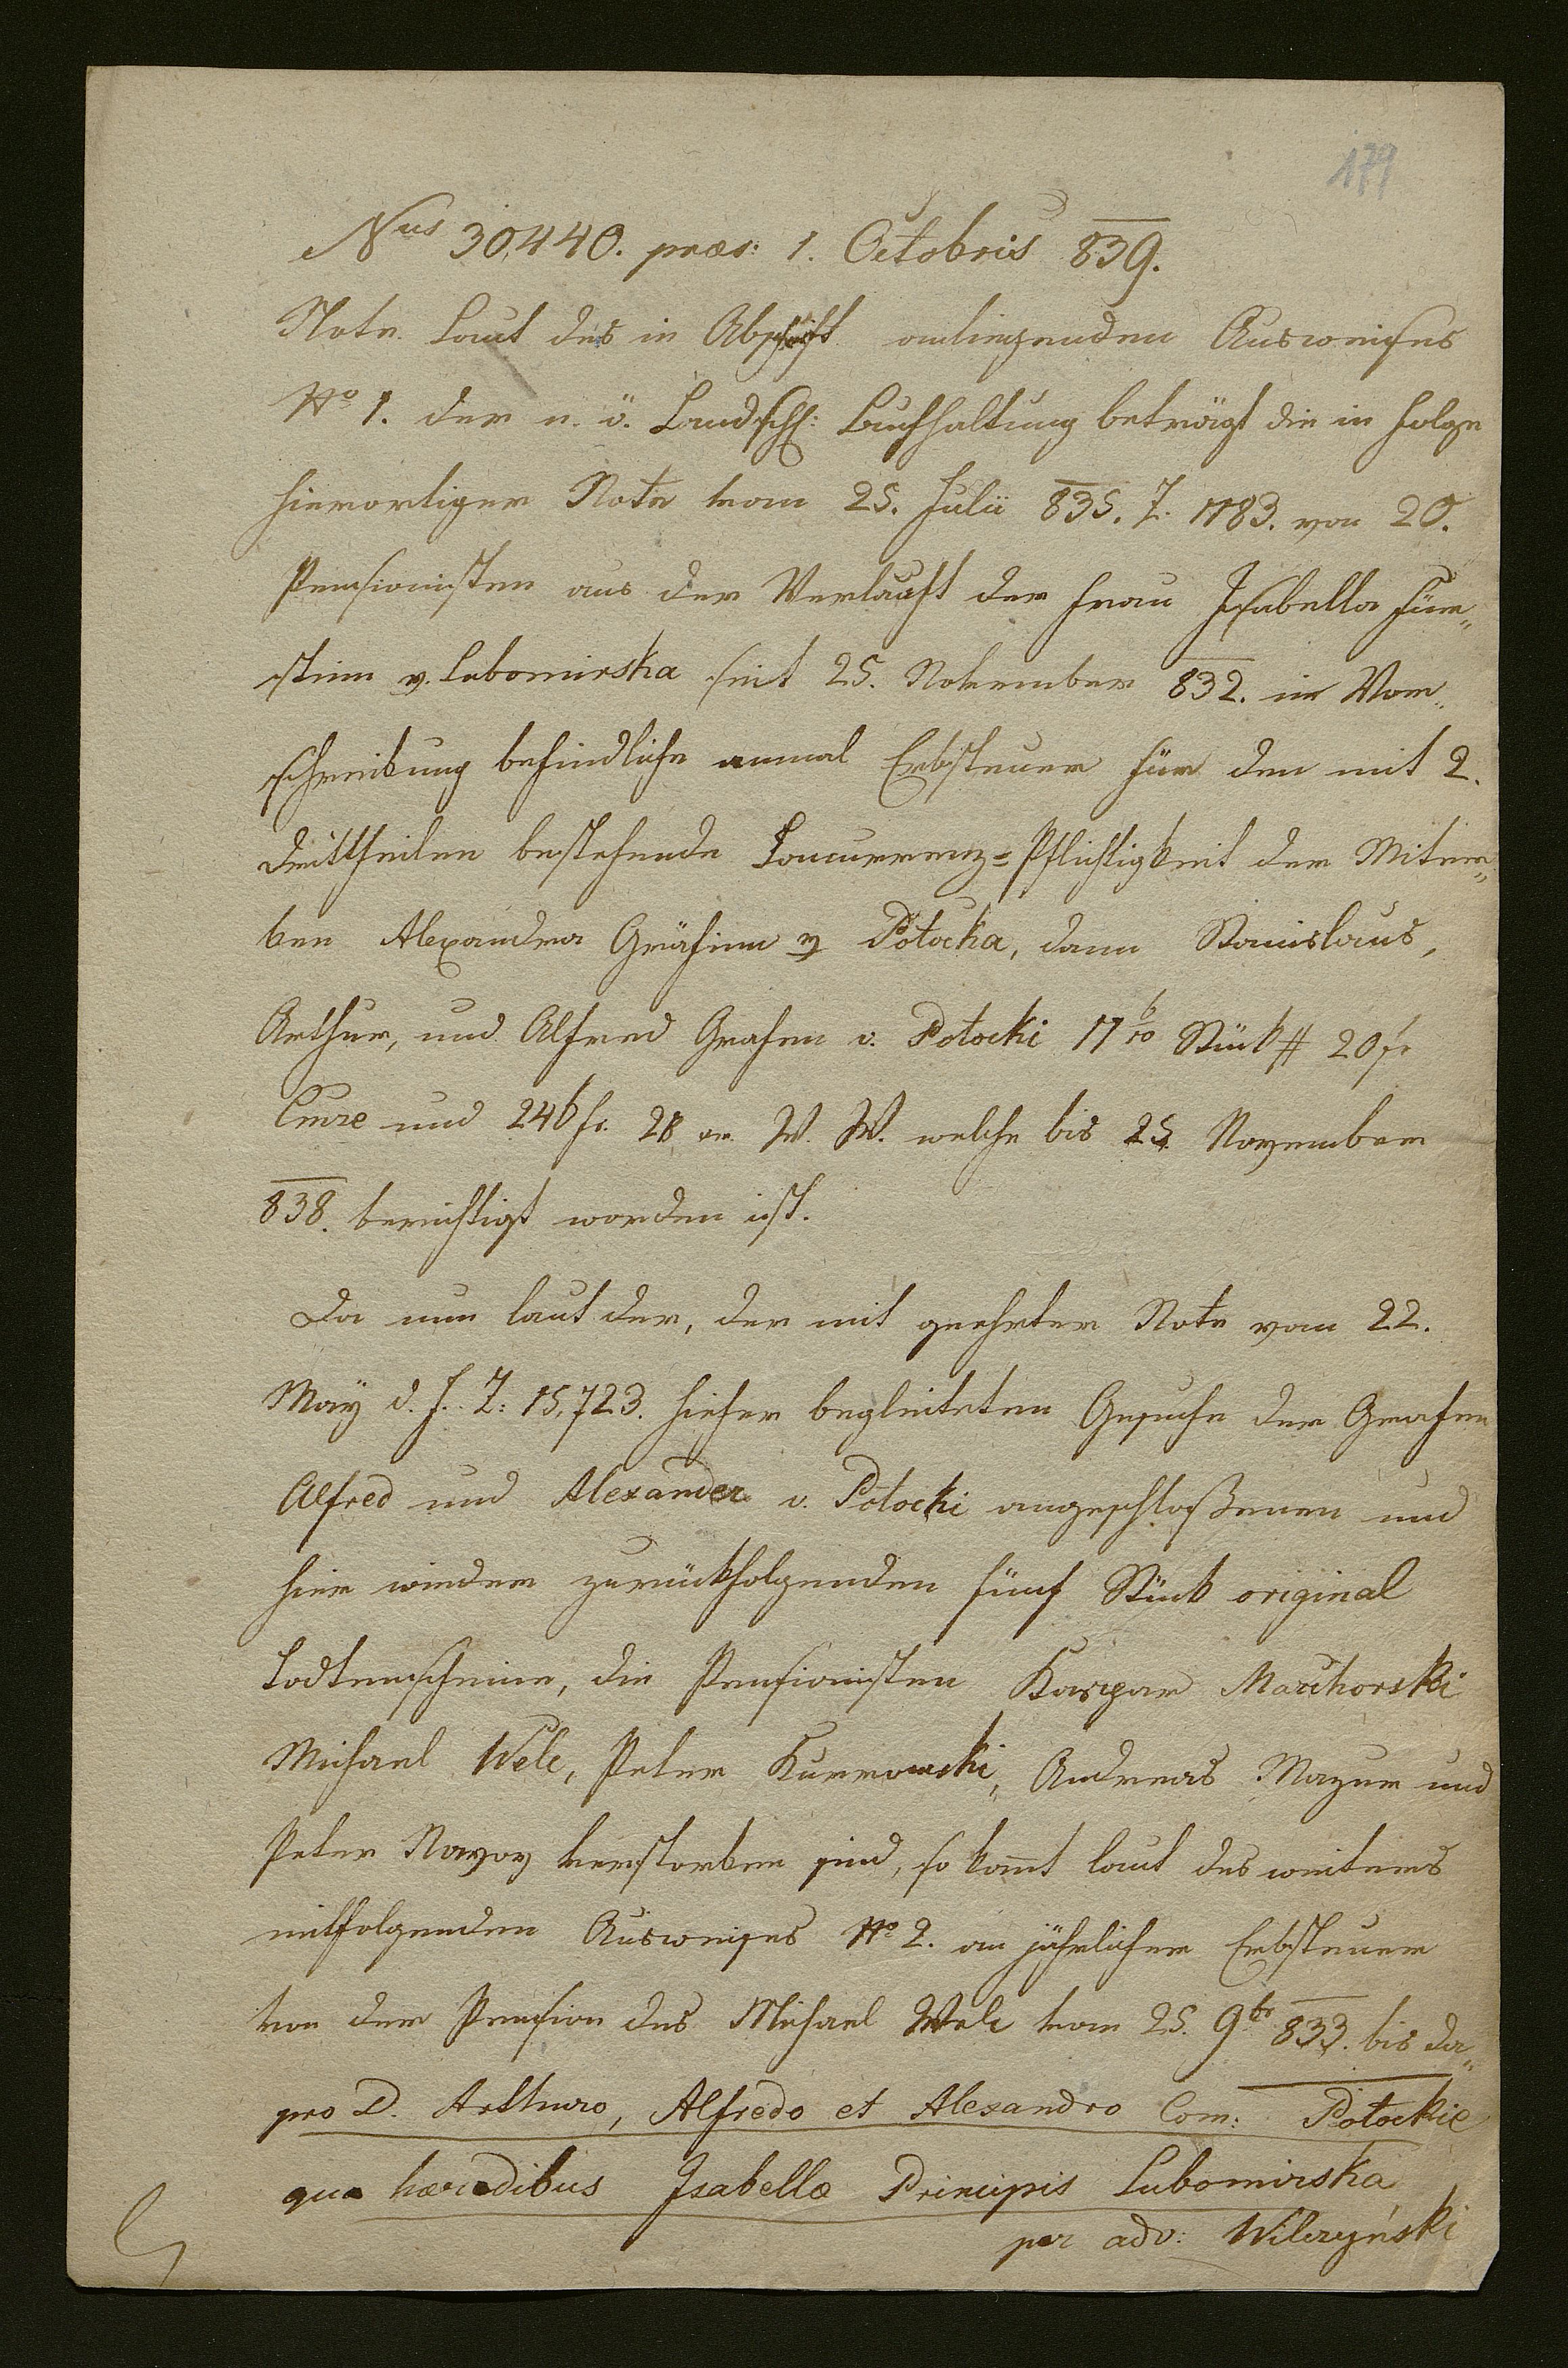 179
Nus 30,440. præs: 1. Octobris 839.
Note. Laut des in Abschrift anliegenden Ausweises
No 1. der n. ö. Landschftl: Buchhaltung beträgt die in Folge
hierortiger Note vom 25. Julii 835. Z. 1783. von 20.
Pensionisten aus der Verlaßft der Frau Isabella Für„
stinn v. Lubomirska seit 25. November 832. in Vor„
schreibung befindliche annal Erbsteuer für den mit 2.
Drittheilen bestehende Concurrenz=Pflichtigkeit der Miter„
ben Alexandra Gräfinn v Potocka, dann Stanislaus,
Arthur, und Alfred Grafen v. Potocki 11 6/10 Stück # 20 fr
Cmze und 246 fr. 28 xr. W. W. welche bis 25. November
838. berichtigt worden ist.
Da nun laut der, der mit geehrter Note vom 22.
May d. J. Z: 15,723. hieher begleiteten Gesuche der Grafen
Alfred und Alexander v. Potocki angeschloßenen und
hier wieder zurückfolgenden fünf Stück original
Todtenscheine, die Pensionisten Kaspar Marchorski
Michael Wele, Peter Kurrowski, Andreas Mazur und
Peter verstorben sind, so kom̄t laut des weiters
mitfolgenden Ausweises No 2. an jährlicher Erbsteuer
von der Pension des Michael Wele vom 25. 9br 833. bis da„
pro D. Arthuro, Alfredo et Alexandro Com: Potockie
qua hæredibus Isabellæ Principis Lubomirska
per adv: Wilczyński